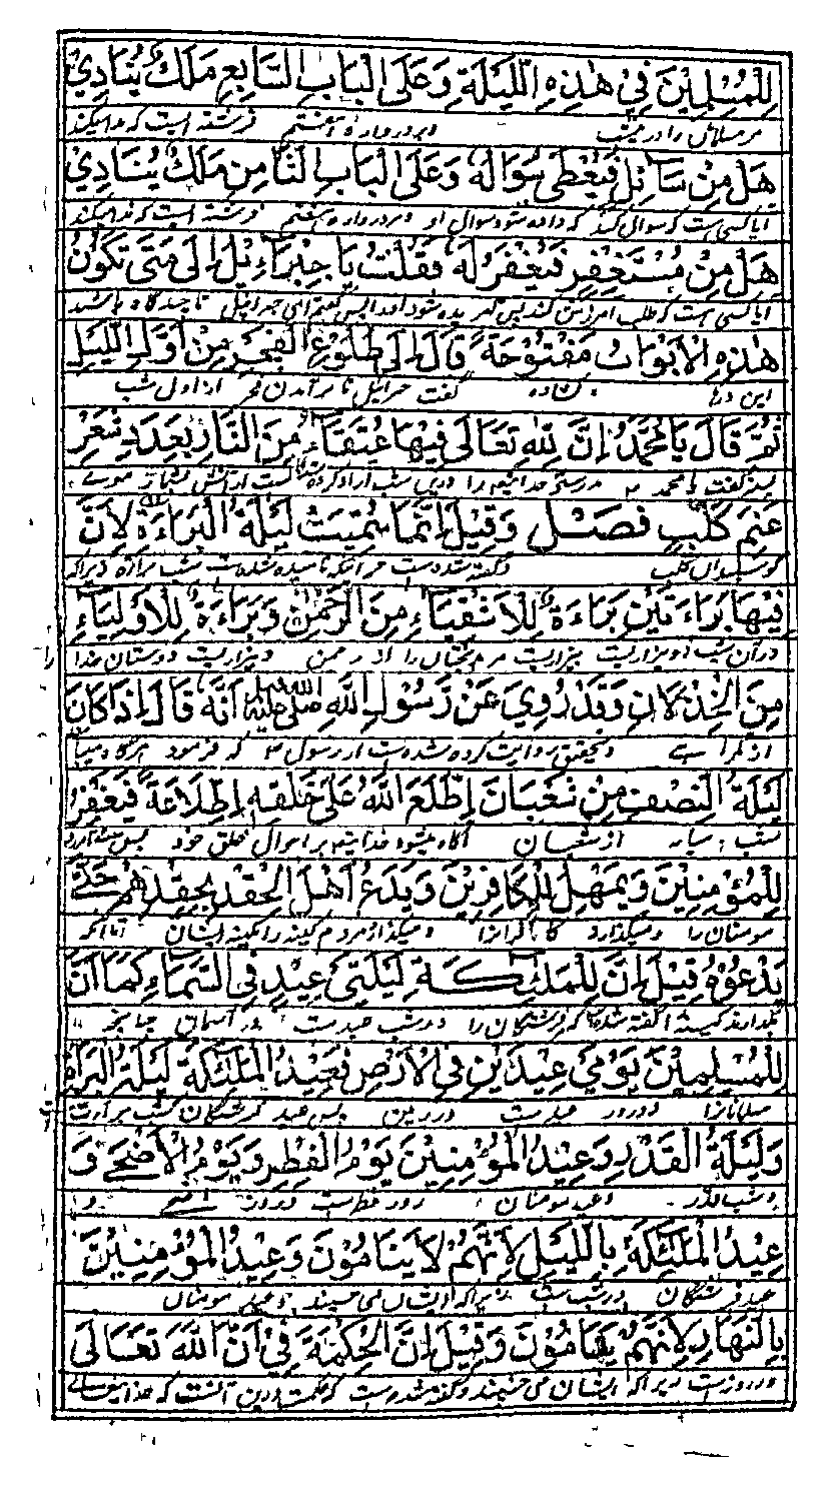 لِلْمُسْلِمِيْنَ فِيْ هٰذِهِ اللَّيْلَةِ وَعَلَى الْبَابِ السَّابِعِ مَلَكٌ يُنَادِيْ
مر مسلمانان را در شب وبر دروازه هفتم فرشته است که ندا میکند
هَلْ مِنْ سَائِلٍ فَيُعْطٰى سُؤَالَهٗ وَعَلَى الْبَابِ الثَّامِنِ مَلَكٌ يُنَادِيْ
آیا کسی است که سوال کند که داده شود سوال او و بر دروازه هشتم فرشته است که ندا میکند
هَلْ مِنْ مُسْتَغْفِرٍ فَيُغْفَرُ لَهٗ فَقُلْتُ يَا جِبْرَاءِيْلُ اِلٰى مَتٰى تَكُوْنُ
آیا کسی است که طلب آمرزش کند پس شود او را پس گفتم ای جبرائیل تا چند گاه باشند
هٰذِهِ الْاَبْوَابُ مَفْتُوْحَةً قَالَ اِلٰى طُلُوْعِ الْفَجْرِ مِنْ اَوَّلِ اللَّيْلِ
این درها کشاده گفت جبرائیل تا برآمدن فجر از اول شب
ثُمَّ قَالَ يَا مُحَمَّدُ اِنَّ لِلّٰهِ تَعَالٰى فِيْهَا عُتَقَاءَ مِنَ النَّارِ بِعَدَدِ شَعْرِ
پس گفت یا محمد بدرستی خدایتعالی را درین شب آزاد کرده است از آتش بشمار موے
غَنَمِ كَلْبٍ فَصْلٌ وَقِيْلَ اِنَّمَا سُمِّيَتْ لَيْلَةُ الْبَرَاءَةِ لِاَنَّ
گوسپندان کلب و گفته شده است جز آنکه نامیده شده است شب براءة زیرا که
فِيْهَا بَرَاءَتَيْنِ بَرَاءَةٌ لِلْاَشْقِيَاءِ مِنَ الرَّحْمٰنِ وَبَرَاءَةٌ لِلْاَوْلِيَاءِ
در آن شب دو بیزاریست بیزاریست مر بدبختان را از رحمن و بیزاریست دوستان خدا را
مِنَ الْخِذْلَانِ وَقَدْ رُوِيَ عَنْ رَسُوْلِ اللّٰهِ صلى الله عليه وسلم اَنَّهٗ قَالَ اِذَا كَانَ
از و بتحقیق روایت کرده شده است از رسول که فرمود هرگاه
لَيْلَةُ النِّصْفِ مِنْ شَعْبَانَ اِطَّلَعَ اللّٰهُ عَلٰى خَلْقِهٖ اِطِّلَاعَةً فَيَغْفِرُ
شب از شعبان آگاه میشود خدایتعالی بر احوال خلق خود پس
لِلْمُؤْمِنِيْنَ وَيُمْهِلُ لِلْكَافِرِيْنَ وَيَدَعُ اَهْلَ الْحِقْدِ بِحِقْدِهِمْ حَتّٰى
مومنان را و میگذارد کافرانرا و میگذارد مردم کینه را بکینه ایشان تا آنکه
يَدْعُوْهُ قِيْلَ اِنَّ لِلْمَلٰئِكَةِ لَيْلَتَيْ عِيْدٍ فِي السَّمَاءِ كَمَا اَنَّ
بگذارند کینه را گفته شده که فرشتگان را دو شب عید است در آسمان چنانچه
لِلْمُسْلِمِيْنَ يَوْمَيْ عِيْدَيْنِ فِي الْاَرْضِ فَعِيْدُ الْمَلٰئِكَةِ لَيْلَةُ الْبَرَاءَةِ
مسلمانانرا دو روز عید است در زمین پس عید فرشتگان شب برات
وَلَيْلَةُ الْقَدْرِ وَعِيْدُ الْمُؤْمِنِيْنَ يَوْمُ الْفِطْرِ وَيَوْمُ الْاَضْحٰى وَ
و شب قدر و عید مومنان روز فطر است و روز اضحی و
عِيْدُ الْمَلٰئِكَةِ بِاللَّيْلِ لِاَنَّهُمْ لَا يَنَامُوْنَ وَعِيْدُ الْمُؤْمِنِيْنَ
عید فرشتگان در شب است زیرا که ایشان نمی خسپند و عید مومنان
بِالنَّهَارِ لِاَنَّهُمْ يَنَامُوْنَ وَقِيْلَ اِنَّ الْحِكْمَةَ فِيْ اَنَّ اللّٰهَ تَعَالٰى
در روز است زیرا که ایشان می خسپند و گفته شده است که حکمت درین آنست که خدایتعالی